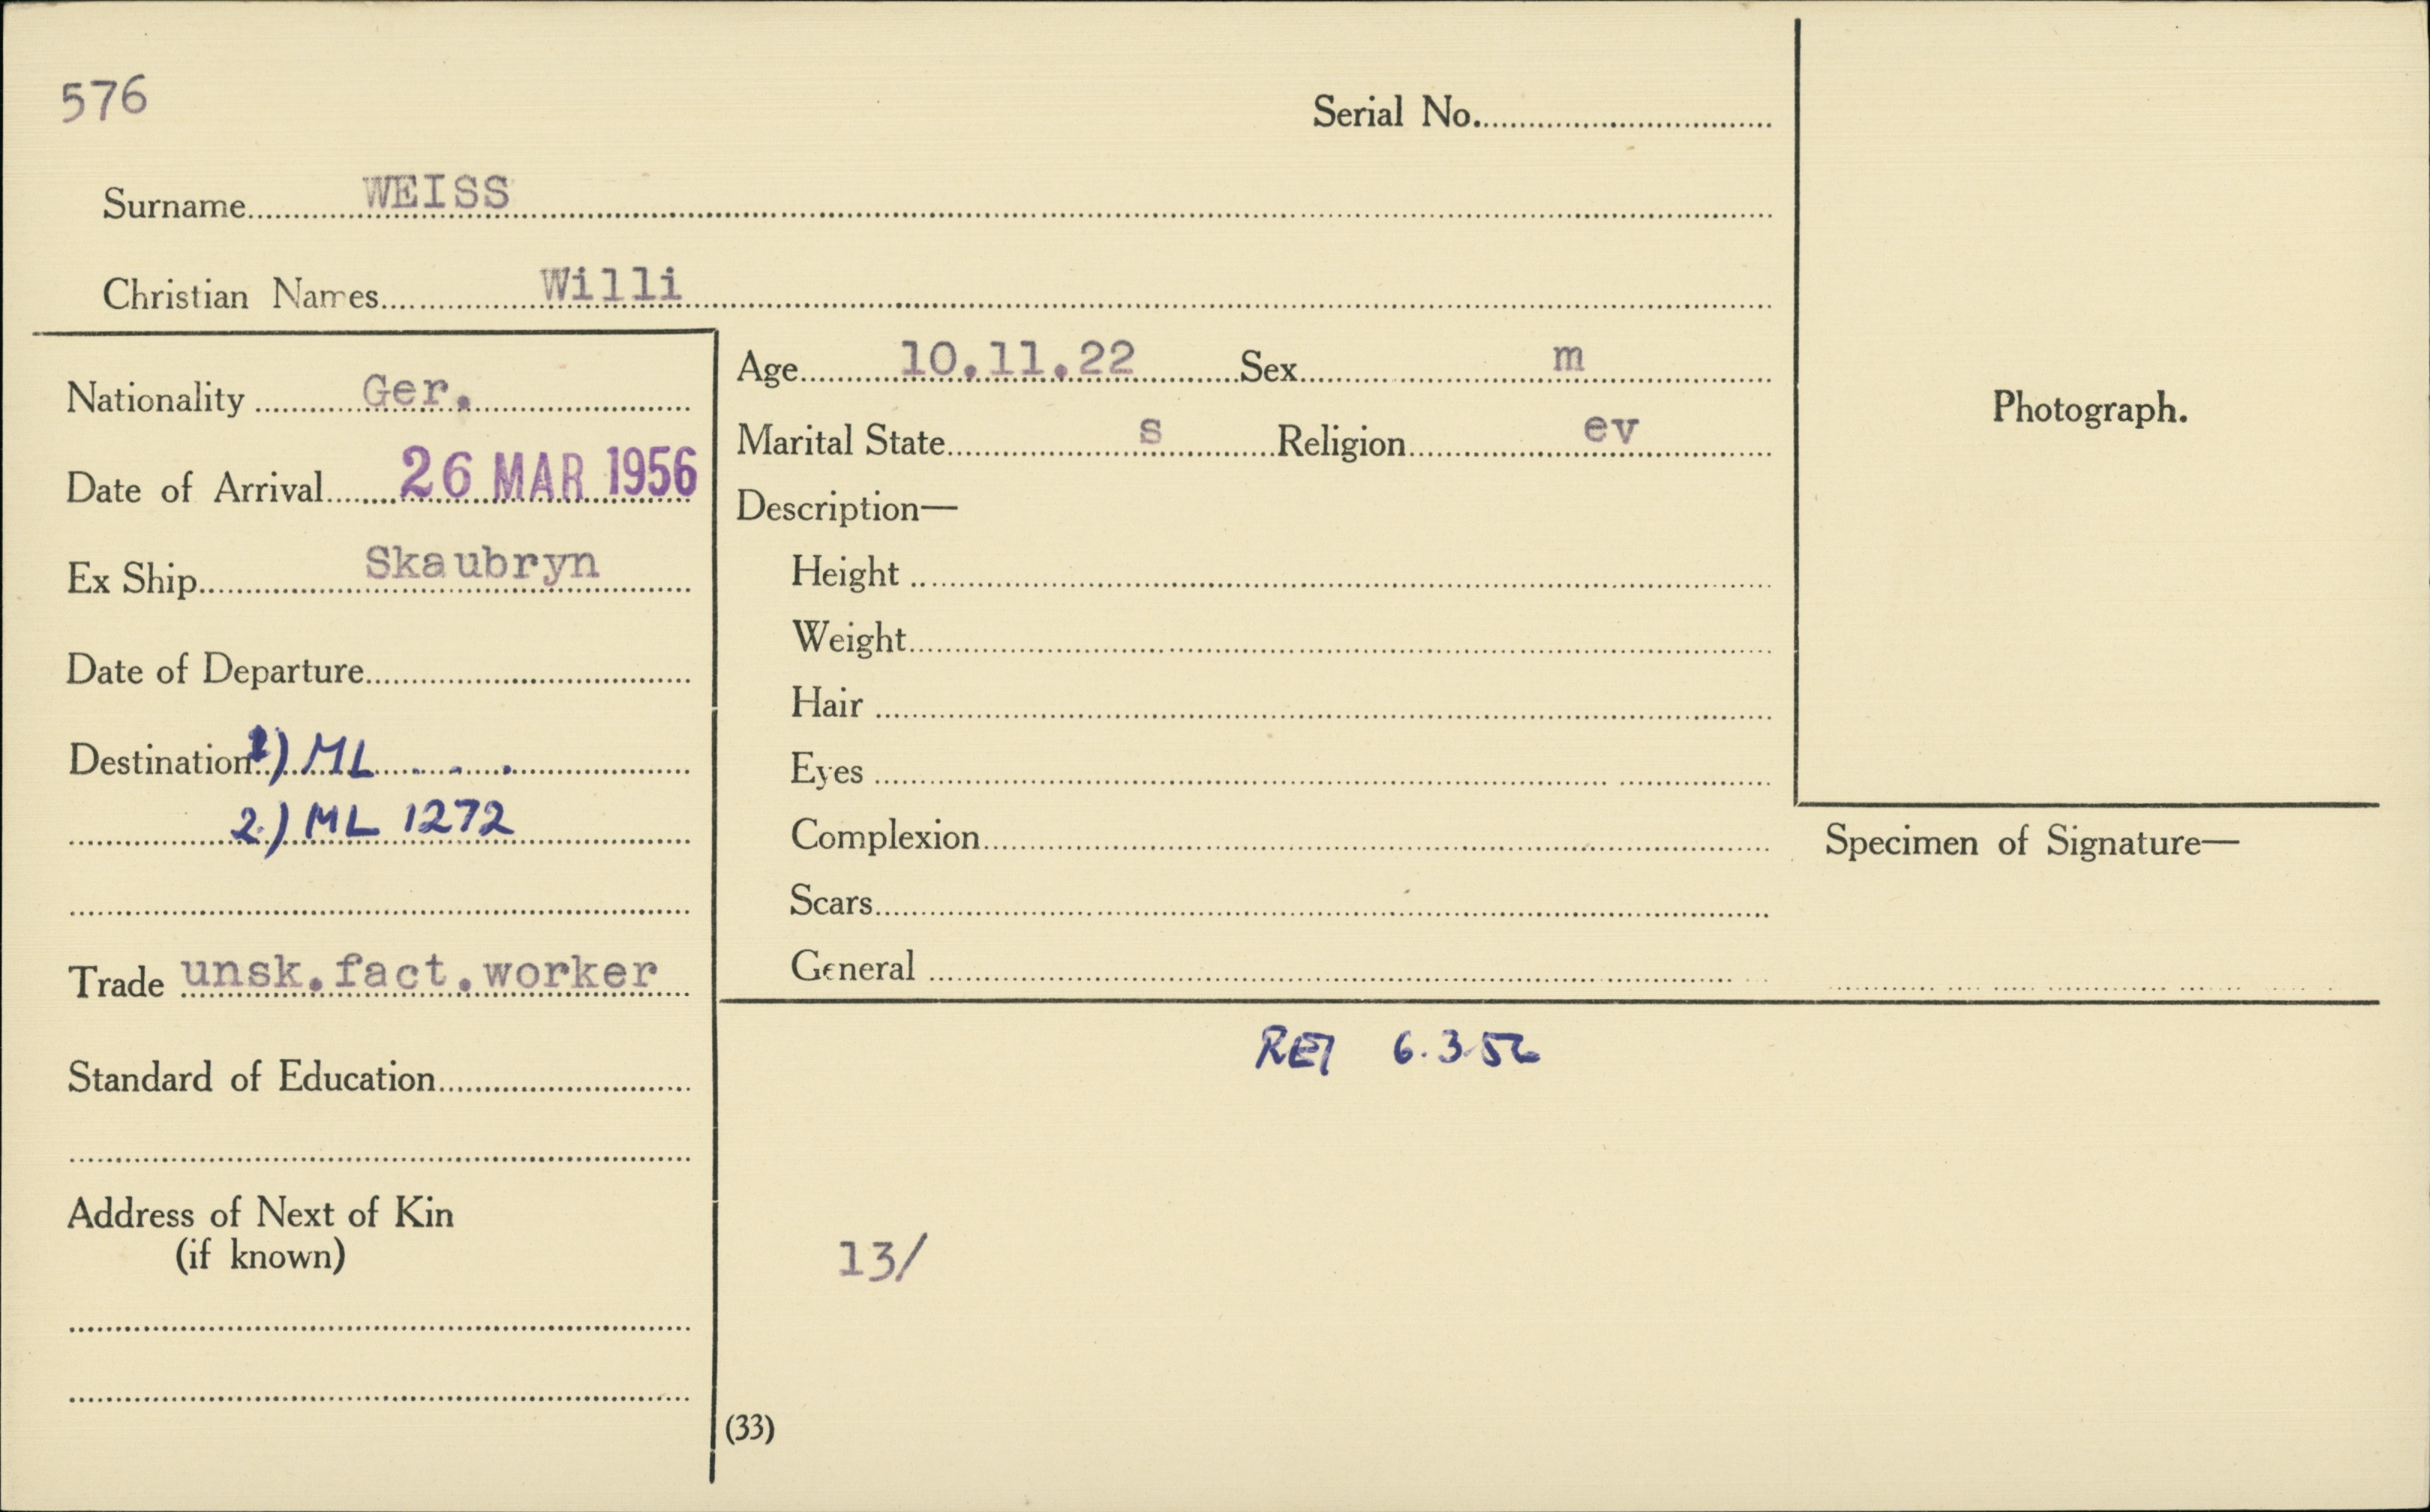 576
Serial No.
Surname WEISS
Christian Names Willi
Nationality Ger.
Date of Arrival 26 MAR 1956
Ex Ship Skaubryn
Date of Departure
Destination 1) ML
2.) ML 1272
Trade unsk.fact.worker
Standard of Education
Address of Next of Kin
(if known)
Age 10.11.22 Sex m
Marital State s Religion ev
Description—
Height
Weight
Hair
Eyes
Complexion
Scars
General
Photograph.
Specimen of Signature—
6.3.56
13/
(33)